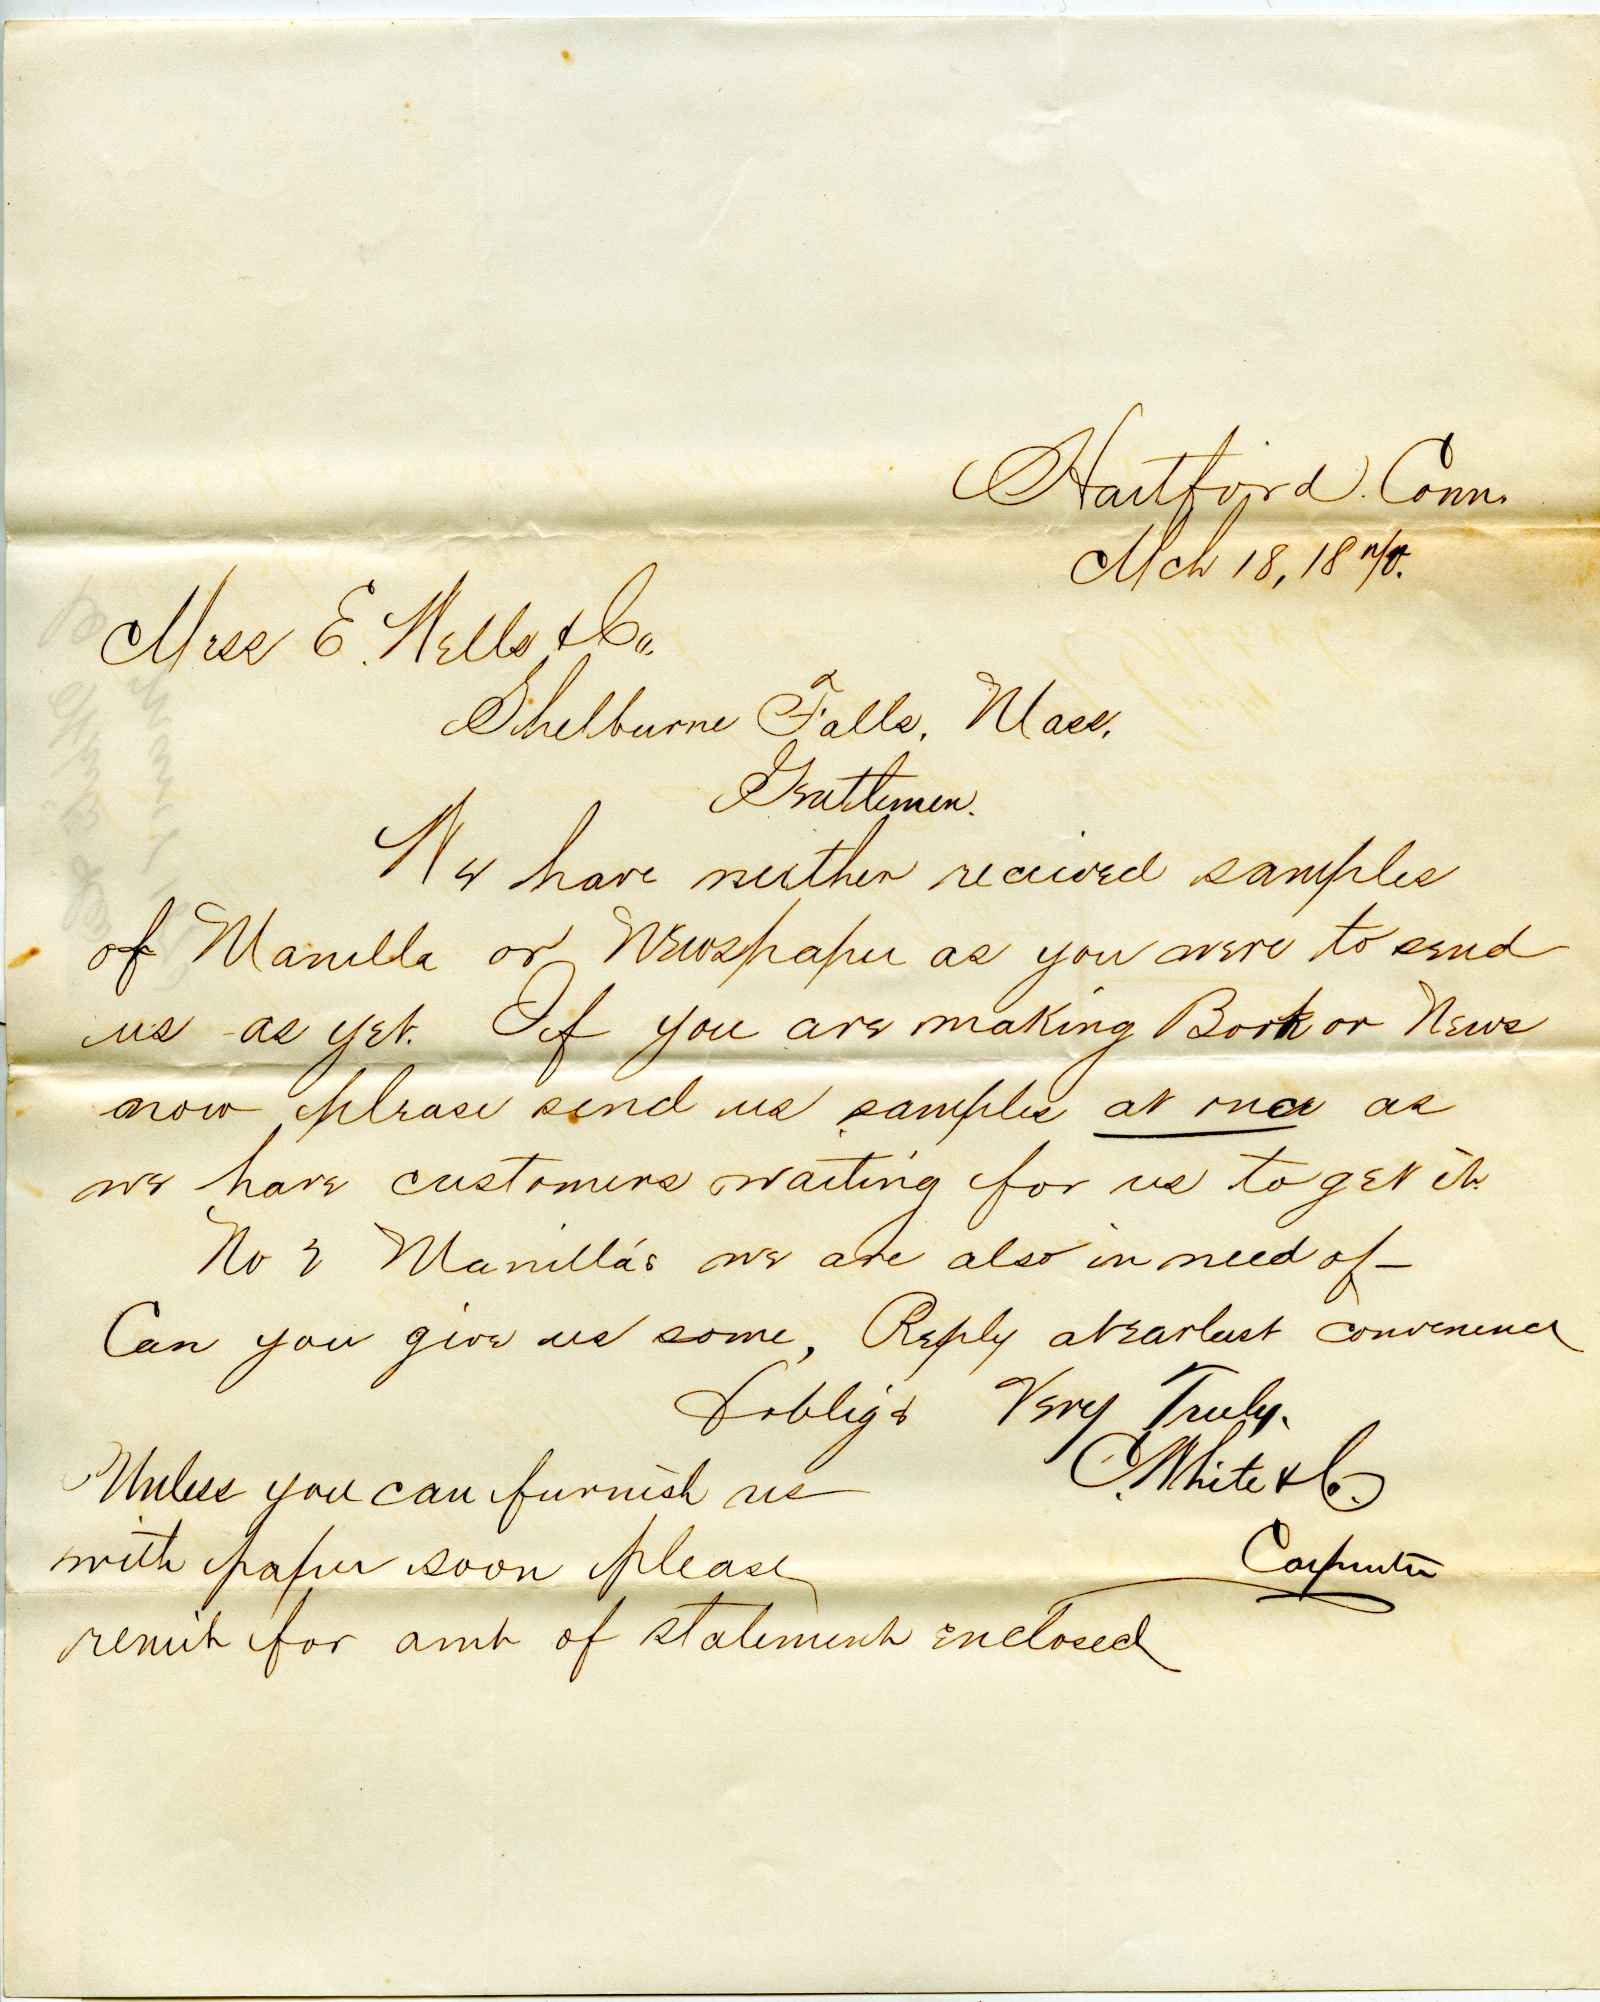 Hartford. Conn.
Mch 18, 1870.
Mess E. Wells & Co.
Shelburne Falls, Mass.
Gentlemen.
We have neither received samples
of Manilla or Newspaper as you were to send
us as yet. If you are making Book or News
now please send us samples at once as
we have customers waiting for us to get it.
No 2 Manilla's we are also in need of—
Can you give us some, Reply at earliest convenience
& oblige Very Truly.
C. White & Co.
Carpenter
Unless you can furnish us
with paper soon please
remit for amt of statement enclosed